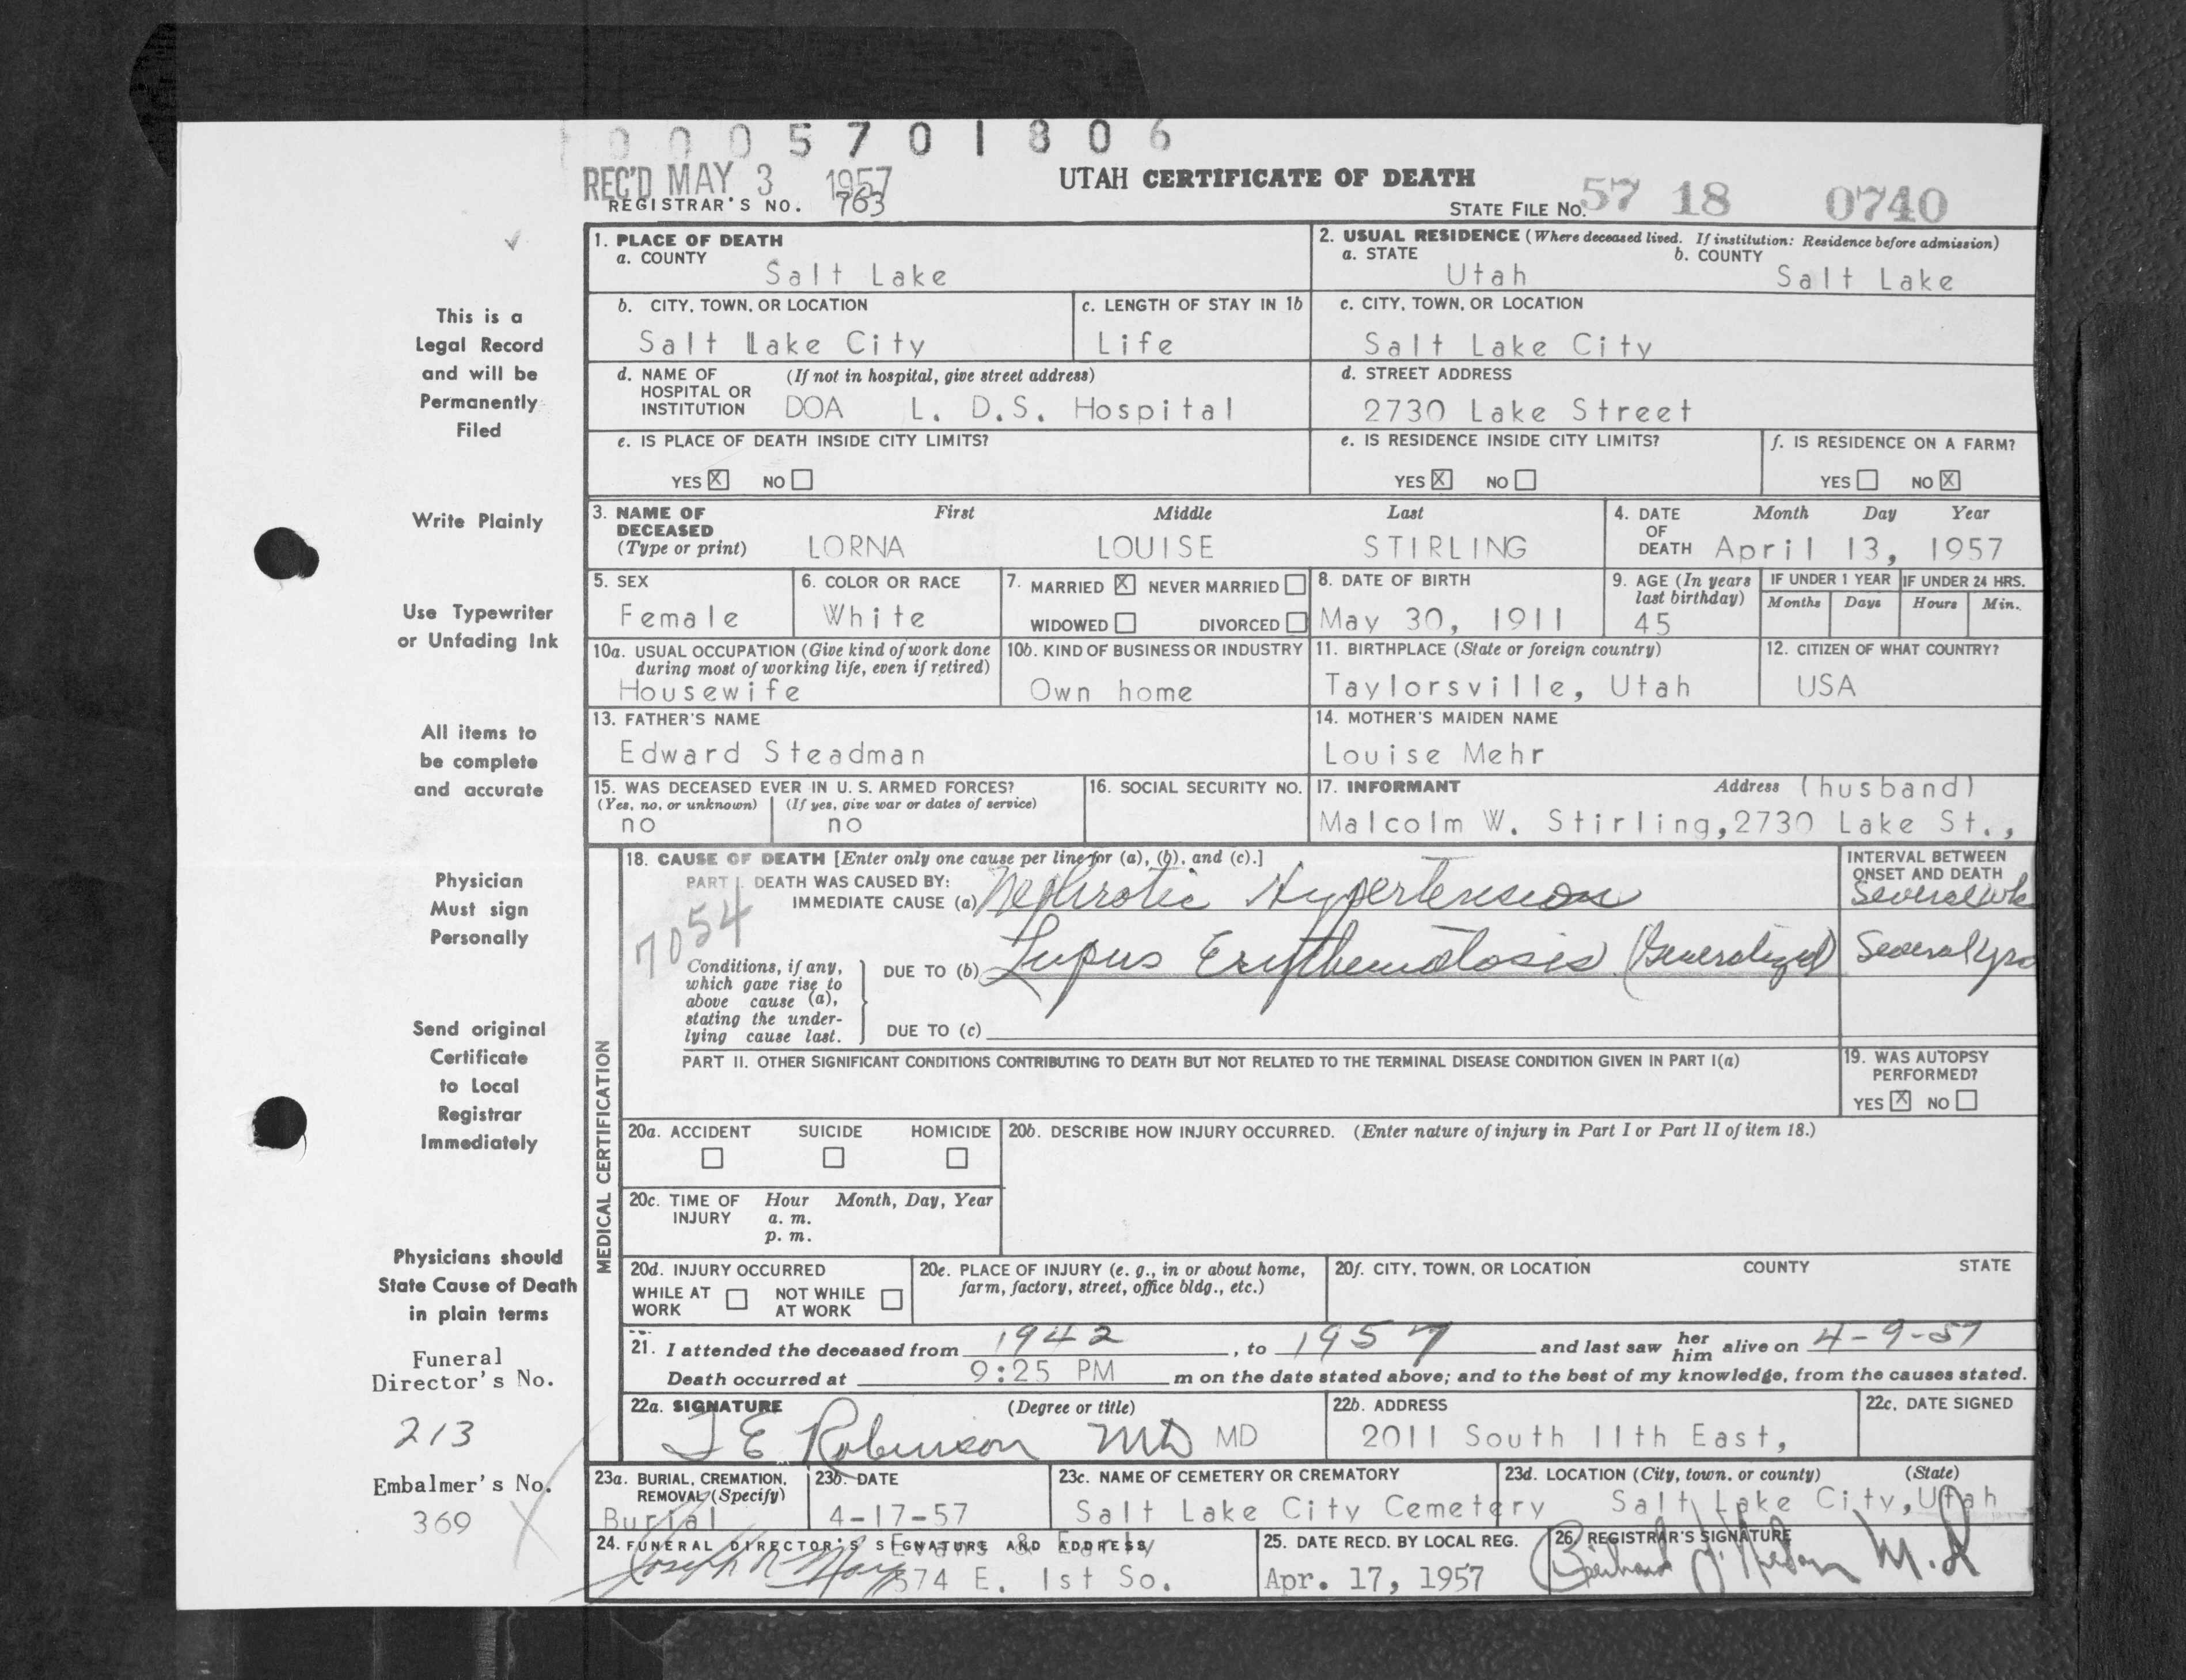 0005701806
REC'D MAY 3 1957
REGISTRAR'S NO. 763
UTAH CERTIFICATE OF DEATH
STATE FILE NO. 57 18 0740
This is a
Legal Record
and will be
Permanently
Filed
Write Plainly
Use Typewriter
or Unfading Ink
All items to
be complete
and accurate
Physician
Must sign
Personally
Send original
Certificate
to Local
Registrar
Immediately
Physicians should
State Cause of Death
in plain terms
Funeral
Director's No.
213
Embalmer's No.
369
1. PLACE OF DEATH
a. COUNTY
Salt Lake
2. USUAL RESIDENCE (Where deceased lived. If institution: Residence before admission)
a. STATE b. COUNTY
Utah Salt Lake
b. CITY, TOWN, OR LOCATION
Salt Lake City
c. LENGTH OF STAY IN 1b
Life
c. CITY, TOWN, OR LOCATION
Salt Lake City
d. NAME OF (If not in hospital, give street address)
HOSPITAL OR
INSTITUTION DOA L. D.S. Hospital
d. STREET ADDRESS
2730 Lake Street
e. IS PLACE OF DEATH INSIDE CITY LIMITS?
YES X NO
e. IS RESIDENCE INSIDE CITY LIMITS?
YES X NO
f. IS RESIDENCE ON A FARM?
YES NO X
3. NAME OF First Middle Last
DECEASED
(Type or print) LORNA LOUISE STIRLING
4. DATE Month Day Year
OF
DEATH April 13, 1957
5. SEX
Female
6. COLOR OR RACE
White
7. MARRIED X NEVER MARRIED
WIDOWED DIVORCED
8. DATE OF BIRTH
May 30, 1911
9. AGE (In years
last birthday)
45
IF UNDER 1 YEAR IF UNDER 24 HRS.
Months Days Hours Min.
10a. USUAL OCCUPATION (Give kind of work done
during most of working life, even if retired)
Housewife
10b. KIND OF BUSINESS OR INDUSTRY
Own home
11. BIRTHPLACE (State or foreign country)
Taylorsville, Utah
12. CITIZEN OF WHAT COUNTRY?
USA
13. FATHER'S NAME
Edward Steadman
14. MOTHER'S MAIDEN NAME
Louise Mehr
15. WAS DECEASED EVER IN U. S. ARMED FORCES?
(Yes, no, or unknown) (If yes, give war or dates of service)
no no
16. SOCIAL SECURITY NO.
17. INFORMANT Address (husband)
Malcolm W. Stirling, 2730 Lake St.,
MEDICAL CERTIFICATION
18. CAUSE OF DEATH [Enter only one cause per line for (a), (b), and (c).]
PART I. DEATH WAS CAUSED BY:
IMMEDIATE CAUSE (a) Nephrotic Hypertension
INTERVAL BETWEEN
ONSET AND DEATH
Several wk
7054
Conditions, if any,
which gave rise to
above cause (a),
stating the under-
lying cause last.
DUE TO (b) Lupus Erythematosis (Generalized) Several yrs
DUE TO (c)
PART II. OTHER SIGNIFICANT CONDITIONS CONTRIBUTING TO DEATH BUT NOT RELATED TO THE TERMINAL DISEASE CONDITION GIVEN IN PART I(a)
19. WAS AUTOPSY
PERFORMED?
YES X NO
20a. ACCIDENT SUICIDE HOMICIDE
20b. DESCRIBE HOW INJURY OCCURRED. (Enter nature of injury in Part I or Part II of item 18.)
20c. TIME OF Hour Month, Day, Year
INJURY a. m.
p. m.
20d. INJURY OCCURRED
WHILE AT NOT WHILE
WORK AT WORK
20e. PLACE OF INJURY (e. g., in or about home,
farm, factory, street, office bldg., etc.)
20f. CITY, TOWN, OR LOCATION COUNTY STATE
21. I attended the deceased from 1942, to 1957 and last saw her him alive on 4-9-57
Death occurred at 9:25 PM m on the date stated above; and to the best of my knowledge, from the causes stated.
22a. SIGNATURE (Degree or title)
Robinson MD MD
22b. ADDRESS
2011 South 11th East,
22c. DATE SIGNED
23a. BURIAL, CREMATION,
REMOVAL (Specify)
Burial
23b. DATE
4-17-57
23c. NAME OF CEMETERY OR CREMATORY
Salt Lake City Cemetery
23d. LOCATION (City, town, or county) (State)
Salt Lake City, Utah
24. FUNERAL DIRECTOR'S SIGNATURE AND ADDRESS
Evans & Early
Joseph R 574 E. 1st So.
25. DATE RECD. BY LOCAL REG.
Apr. 17, 1957
26. REGISTRAR'S SIGNATURE
M.D